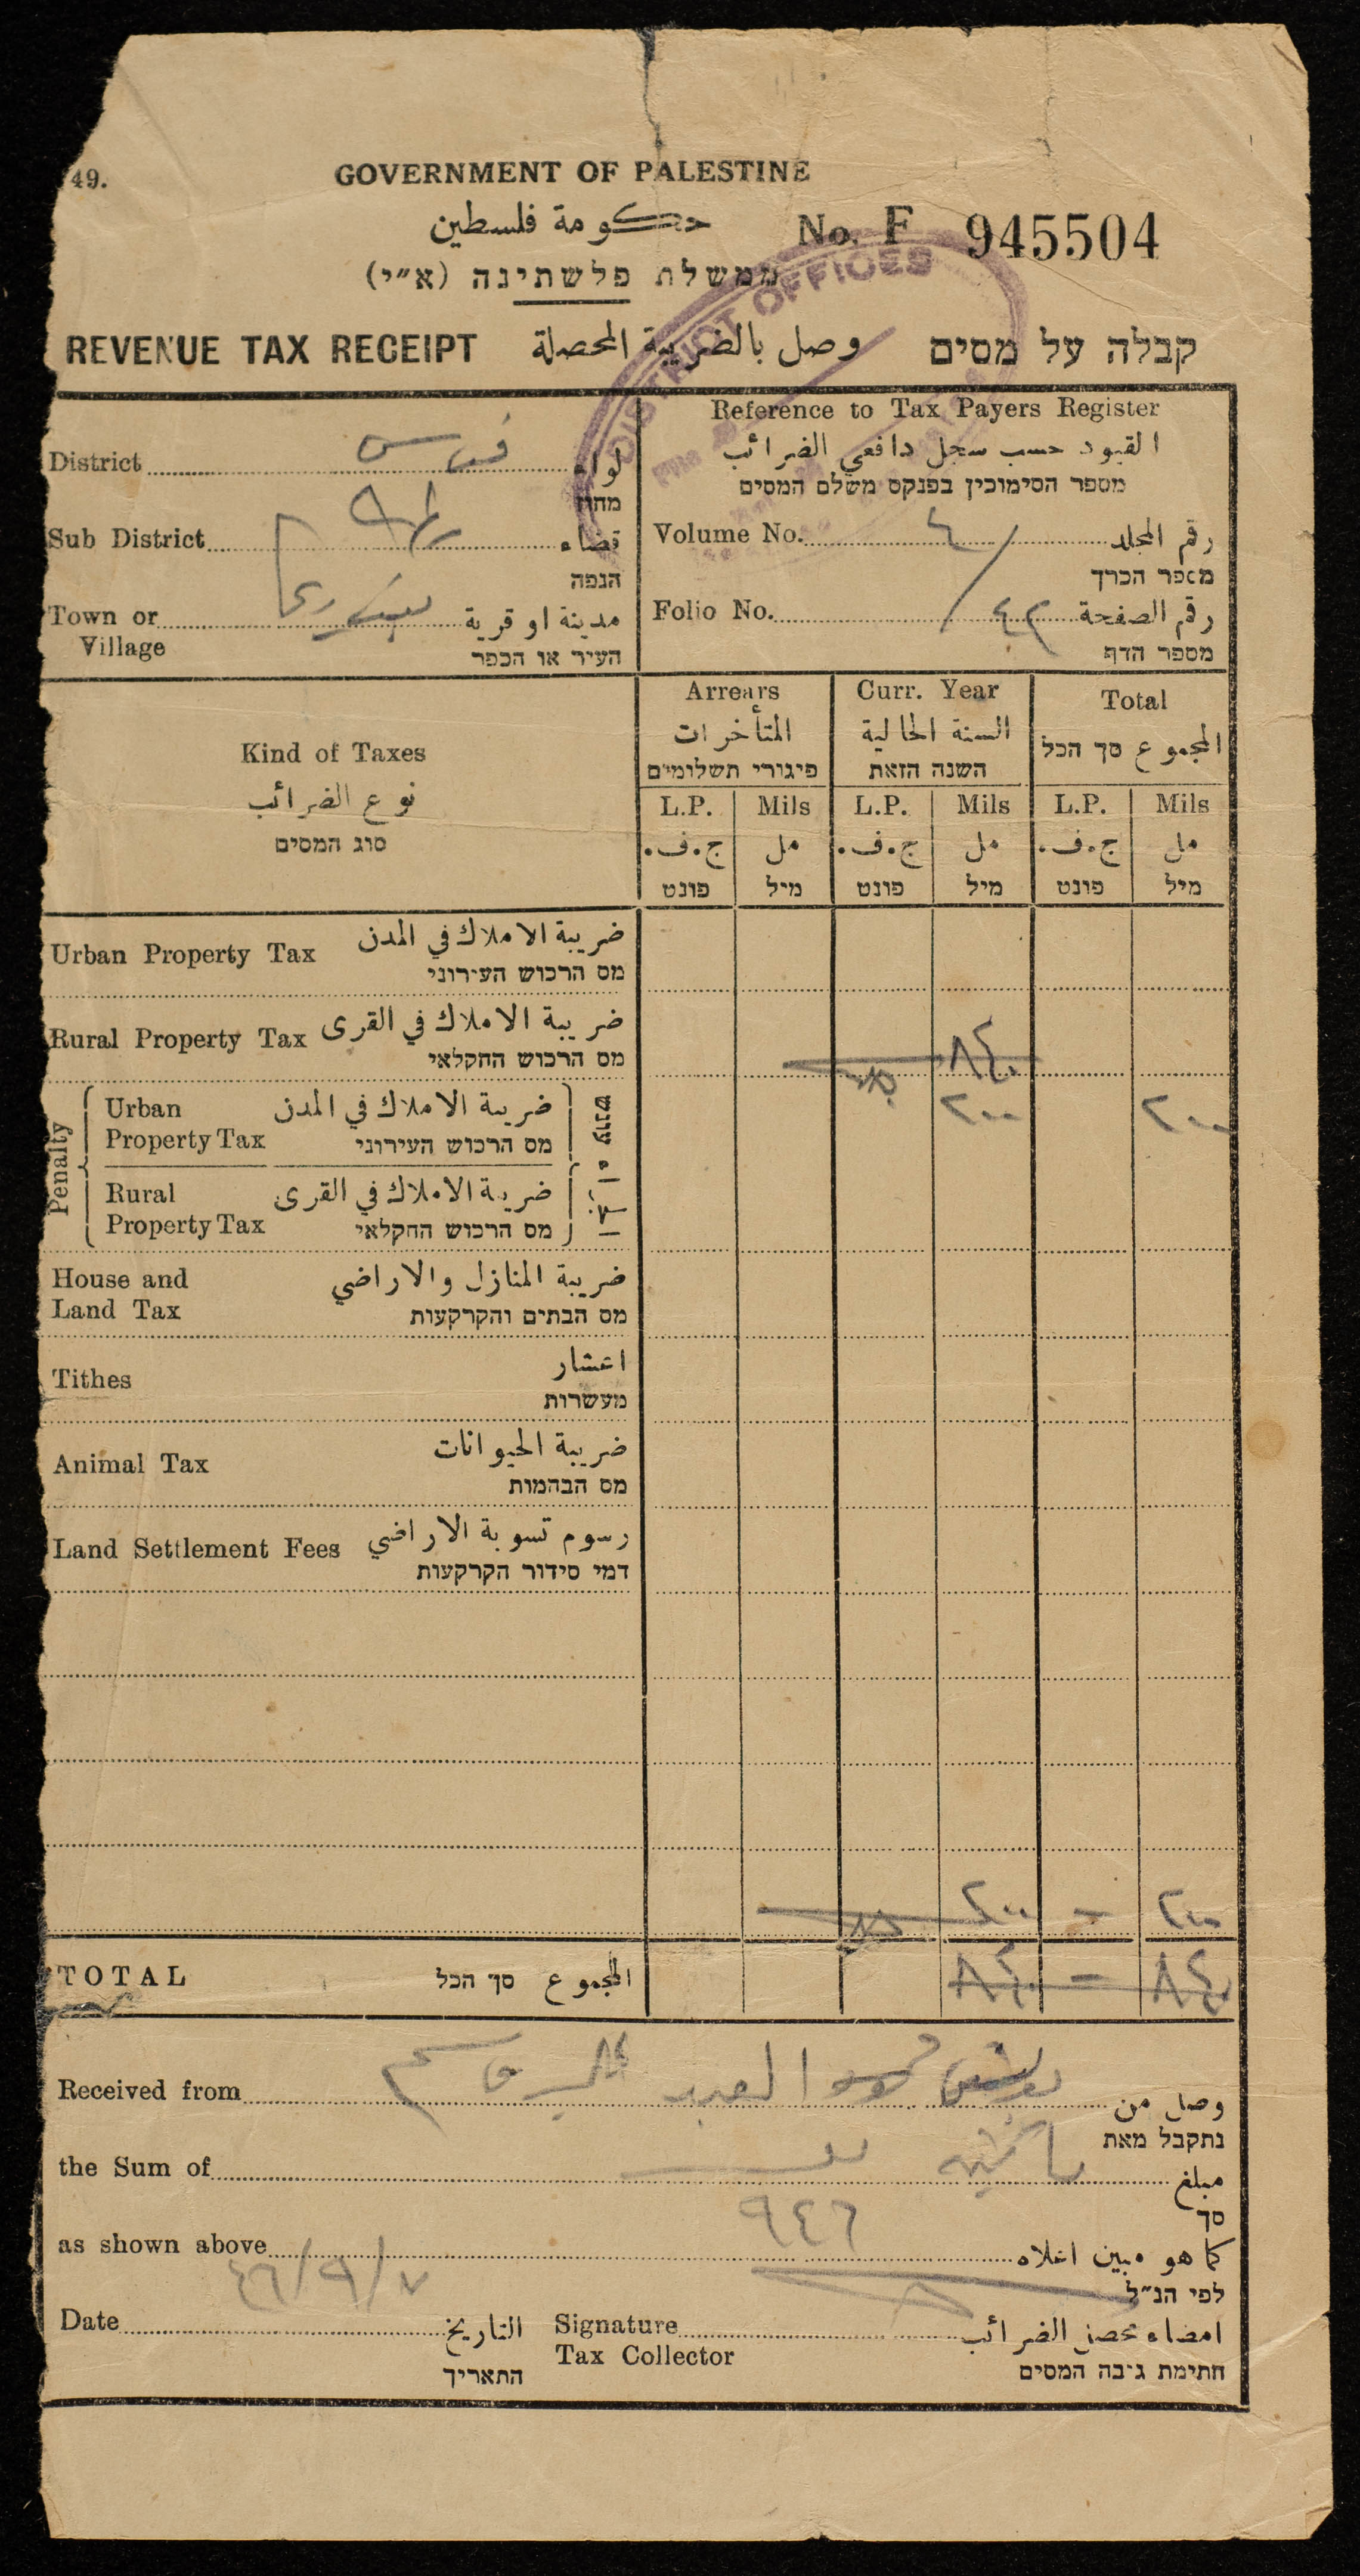 49.
GOVERNMENT OF PALESTINE
حكومة فلسطين
No. F 945504
ממשלת פלשתינה (א״י)
REVENUE TAX RECEIPT وصل بالضريبة المحصلة קבלה על מסים
DISTRICT OFFICES
Reference to Tax Payers Register
القيود حسب سجل دافعي الضرائب
מספר הסימוכין בפנקס משלם המסים
District لواء
מחוז
Sub District قضاء
הנפה
Town or مدينة او قرية
Village העיר או הכפר
Volume No. ٤ رقم المجلد
מספר הכרך
Folio No. ٤٢ رقم الصفحة
מספר הדף
Kind of Taxes
نوع الضرائب
סוג המסים
Arrears Curr. Year Total
المتأخرات السنة الحالية المجموع סך הכל
פיגורי תשלומים השנה הזאת
L.P. Mils L.P. Mils L.P. Mils
ج.ف. مل ج.ف. مل ج.ف. مل
פונט מיל פונט מיל פונט מיל
Urban Property Tax ضريبة الاملاك في المدن
מס הרכוש העירוני
Rural Property Tax ضريبة الاملاك في القرى ٨٤٠
מס הרכוש החקלאי
Penalty
Urban ضريبة الاملاك في المدن ٢٠٠ ٢٠٠
Property Tax מס הרכוש העירוני
עונש
Rural ضريبة الاملاك في القرى
Property Tax מס הרכוש החקלאי
الجزاء
House and ضريبة المنازل والاراضي
Land Tax מס הבתים והקרקעות
Tithes اعشار
מעשרות
Animal Tax ضريبة الحيوانات
מס הבהמות
Land Settlement Fees رسوم تسوية الاراضي
דמי סידור הקרקעות
٢٠٠ - ٢٠٠
TOTAL المجموع סך הכל ٨٤٠ - ٨٤٠
Received from محمود العبد وصل من
נתקבל מאת
the Sum of مبلغ
סך
٩٤٦
as shown above كما هو مبين اعلاه
לפי הנ״ל
٤٦/٩/٧
Date التاريخ
התאריך
Signature امضاء محصل الضرائب
Tax Collector חתימת גובה המסים